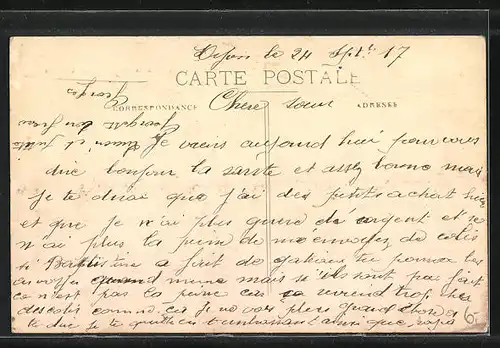 Dijon le 24 Spt. 17
CARTE POSTALE
CORRESPONDANCE
ADRESSE
Chere soeur
Je viens aujourd hui pour vous
dire bonjour la sante et assez bonne mais
je te dirai que j'ai des petits achat
et que je n'ai plus guere de argent et je
n'ai plus la peine de m'envoyer de colis
si a fait de gateau tu pourra les
envoyer quand meme mais si ils sont pas fait
ce n'est pas la peine car ca revient trop cher
des colis comme ca je ne vois plus grand chose a
te dire je te quitte en t'embrassant ainsi que
Georges